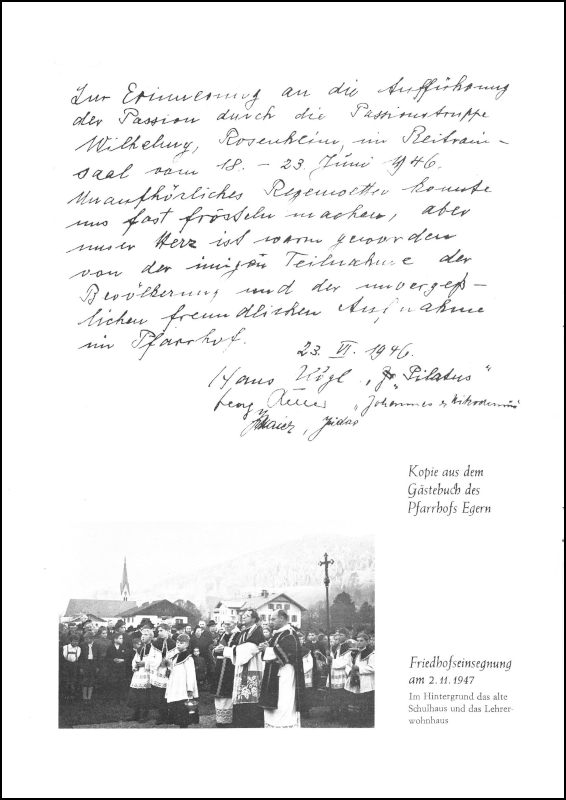 Zur Erinnerung an die Aufführung
der Passion durch die Passionstruppe
Rosenheim, im Reitrain-
saal vom 18. – 23. Juni 1946.
Unaufhörliches Regenwetter konnte
uns fast frösteln machen, aber
unser Herz ist warm geworden
von der innigen Teilnahme der
Bevölkerung und der unvergeß-
lichen freundlichen Aufnahme
im Pfarrhof.
23. VI. 1946.
Hans Kögl „Pilatus"
Georg „Johannes & Nikodemus"
Maier, Judas
Kopie aus dem
Gästebuch des
Pfarrhofs Egern
Friedhofseinsegnung
am 2.11.1947
Im Hintergrund das alte
Schulhaus und das Lehrer-
wohnhaus